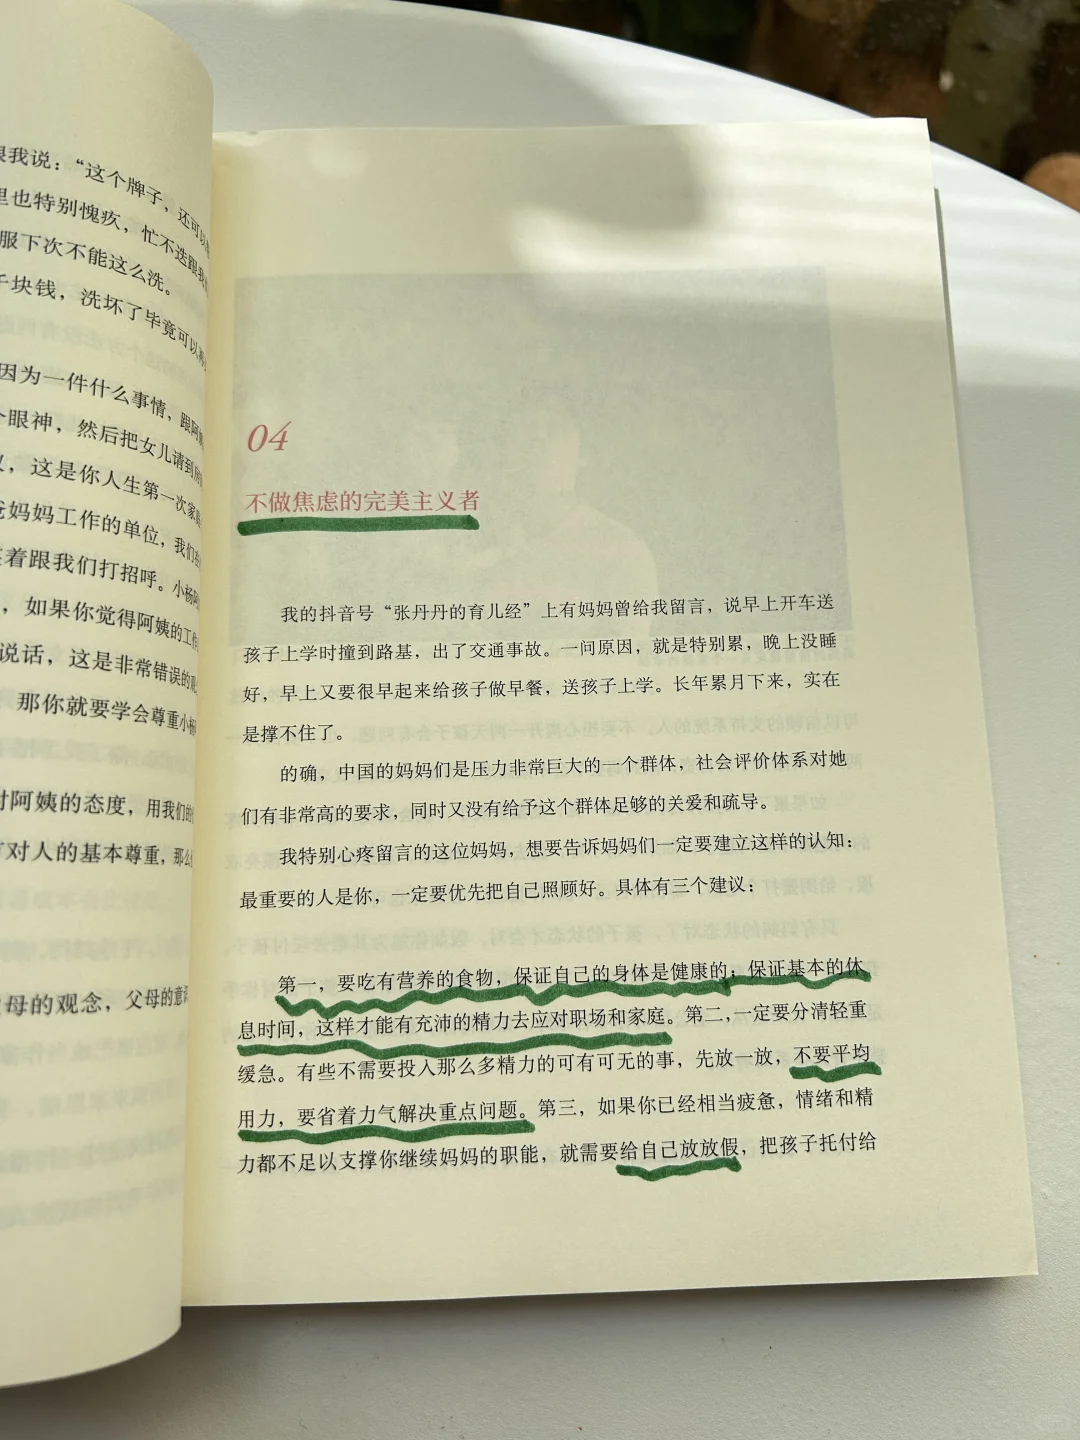 跟我说：“这个牌子，还可以
里也特别愧疚，忙不迭跟我
服下次不能这么洗。
千块钱，洗坏了毕竟可以再
因为一件什么事情，跟阿姨
个眼神，然后把女儿请到房
，这是你人生第一次家庭
爸妈妈工作的单位，我们在
着跟我们打招呼。小杨阿
，如果你觉得阿姨的工作
说话，这是非常错误的观
那你就要学会尊重小杨
对阿姨的态度，用我们的
对人的基本尊重，那么
母的观念，父母的意识
04
不做焦虑的完美主义者
我的抖音号“张丹丹的育儿经”上有妈妈曾给我留言，说早上开车送
孩子上学时撞到路基，出了交通事故。一问原因，就是特别累，晚上没睡
好，早上又要很早起来给孩子做早餐，送孩子上学。长年累月下来，实在
是撑不住了。
的确，中国的妈妈们是压力非常巨大的一个群体，社会评价体系对她
们有非常高的要求，同时又没有给予这个群体足够的关爱和疏导。
我特别心疼留言的这位妈妈，想要告诉妈妈们一定要建立这样的认知：
最重要的人是你，一定要优先把自己照顾好。具体有三个建议：
第一，要吃有营养的食物，保证自己的身体是健康的；保证基本的休
息时间，这样才能有充沛的精力去应对职场和家庭。第二，一定要分清轻重
缓急。有些不需要投入那么多精力的可有可无的事，先放一放，不要平均
用力，要省着力气解决重点问题。第三，如果你已经相当疲惫，情绪和精
力都不足以支撑你继续妈妈的职能，就需要给自己放放假，把孩子托付给